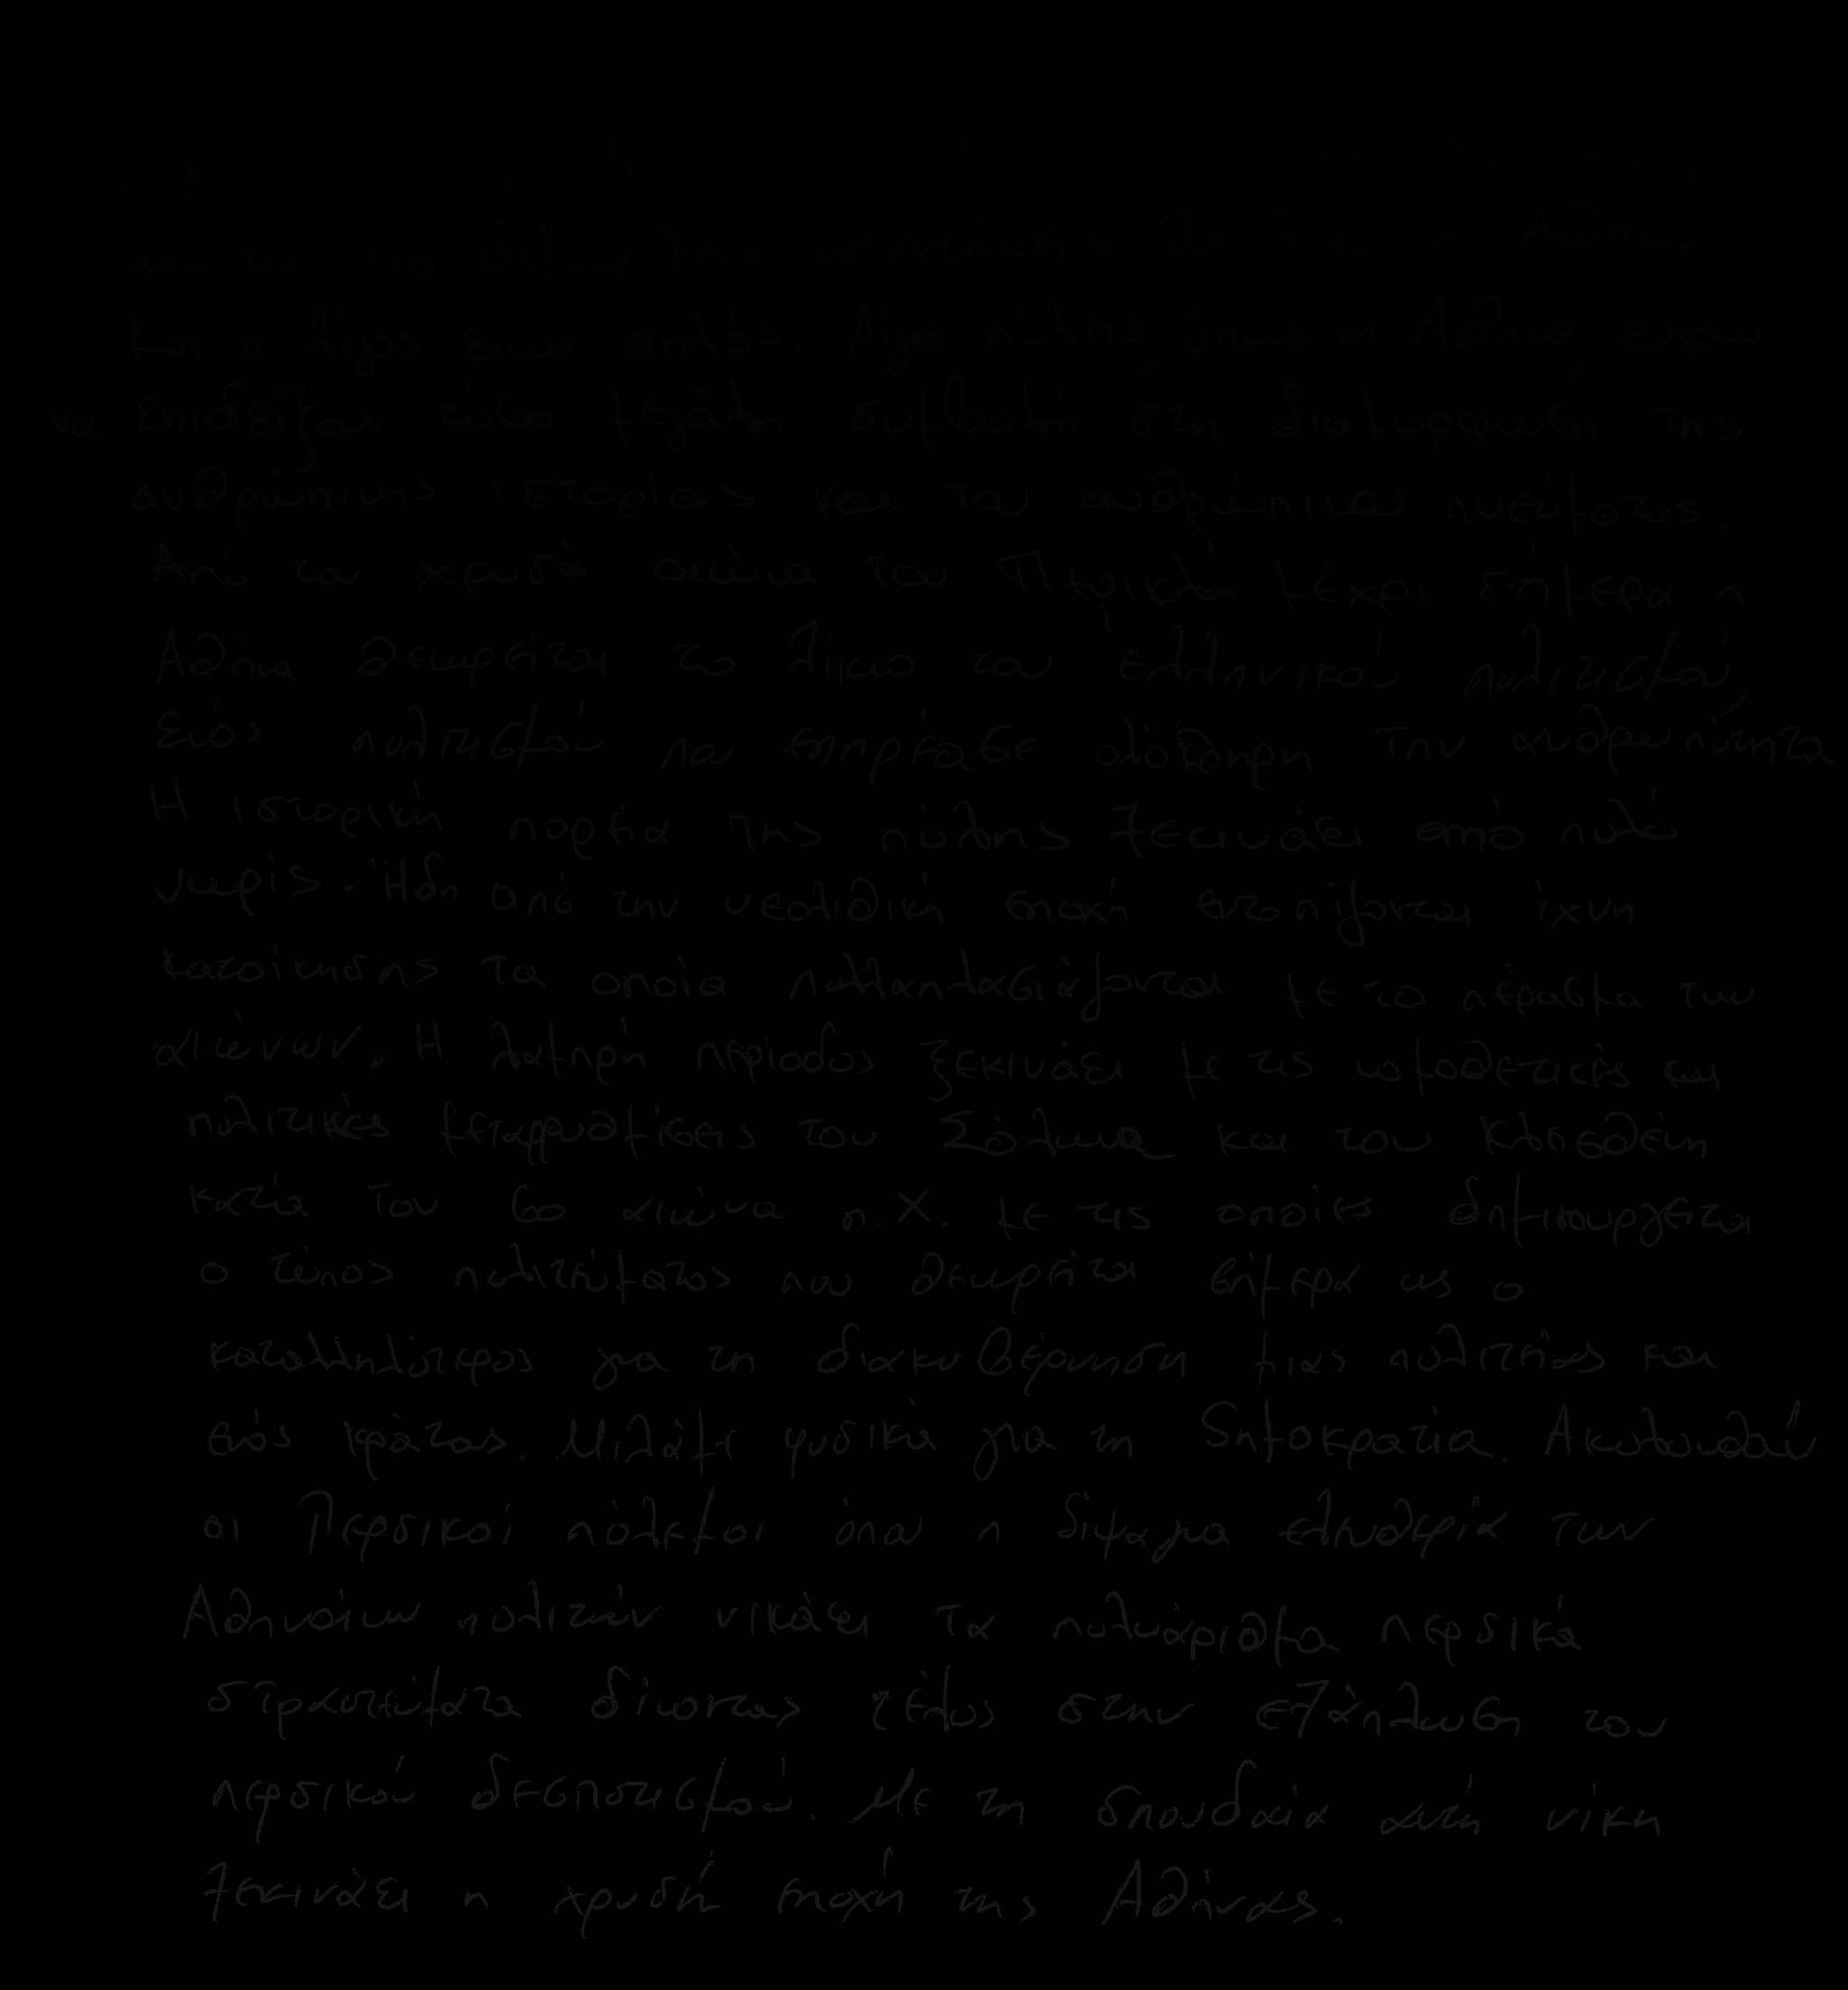 πόλη μέσα στο διάβα της Ιστορίας τότε σίγουρα μια
από τις πιο δημοφιλής απαντήσεις θα ήταν η Αθήνα.
Και ο λόγος είναι απλός. Λίγες πόλεις, όπως η Αθήνα, έχουν
να επιδείξουν τόσο μεγάλη συμβολή στη διαμόρφωση της
ανθρώπινης ιστορίας και του ανθρώπινου πνεύματος.
Από τον χρυσό αιώνα του Περικλή μέχρι σήμερα η
Αθήνα θεωρείται το λίκνο του ελληνικού πολιτισμού,
ενός πολιτισμού που επηρέασε ολόκληρη την ανθρωπότητα
Η ιστορική πορεία της πόλης ξεκινάει από πολύ
νωρίς. Ήδη από την νεολιθική εποχή εντοπίζονται ίχνη
κατοίκησης τα οποία πολλαπλασιάζονται με το πέρασμα των
αιώνων. Η λαμπρή περίοδος ξεκινάει με τις νομοθετικές και
πολιτικές μεταρρυθμίσεις του Σόλωνα και του Κλεισθένη
κατά τον 6ο αιώνα π.Χ. με τις οποίες δημιουργείται
ο τύπος πολιτεύματος που θεωρείται σήμερα ως ο
καταλληλότερος για τη διακυβέρνηση μιας πολιτείας και
ενός κράτους. Μιλάμε φυσικά για τη δημοκρατία. Ακολουθούν
οι Περσικοί πόλεμοι όπου η δίψα για ελευθερία των
Αθηναίων πολιτών νικάει τα πολυάριθμα περσικά
στρατεύματα δίνοντας τέλος στην εξάπλωση του
περσικού δεσποτισμού. Με τη σπουδαία αυτή νίκη
ξεκινάει η χρυσή εποχή της Αθήνας.